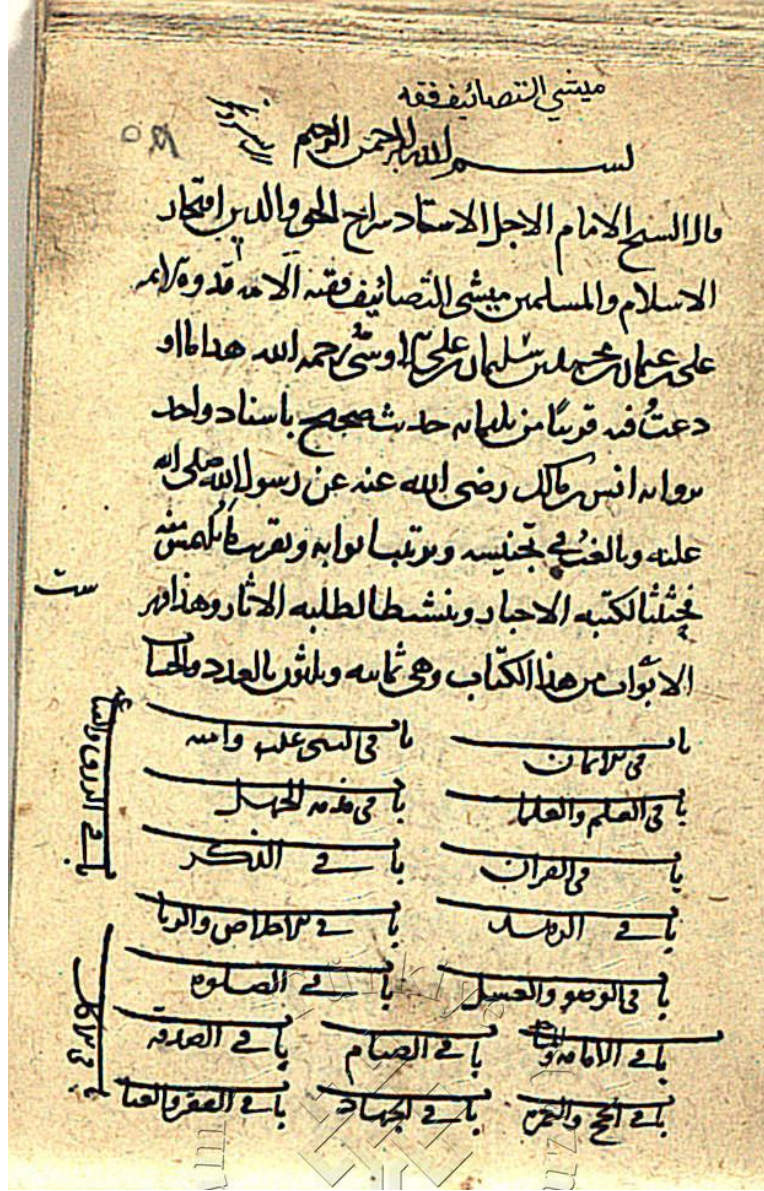 مينشي التصانيف فقه
بسم الله الرحمن الرحيم
قال الشيخ الامام الاجل الاستاد سراج الحق والدين افتخار
الاسلام والمسلمين مينشى التصانيف فقيه الامه قدوة الايمه
على بن عثمان بن محمد بن سليمان بن على اوشى رحمه الله هذا ما او
دعت فيه قريبا من حديث صحيح باسناد واحد
بروايه انس بن مالك رضى الله عنه عن رسول الله صلى الله
عليه وبالغت في تجنيسه وترتيب ابوابه وتقريب
لكتبه الاخبار وتنشيطا لطلبه الاثار وهذا فهر
ست
الابواب من هذا الكتاب وهى ثمانيه وثلثون بالعدد والحسا
باب فى الايمان باب فى النبى عليه وامته
باب فى العلم والعلما باب فى مذمه الجهل
باب فى القران باب فى الذكر
باب فى الزهد باب فى الاخلاص والريا
باب فى الوضو والغسل باب فى الصلوه
باب فى الامامه باب فى الصيام باب فى الصدقه
باب فى الحج والعمره باب فى الجهاد باب فى الفقر والغنا